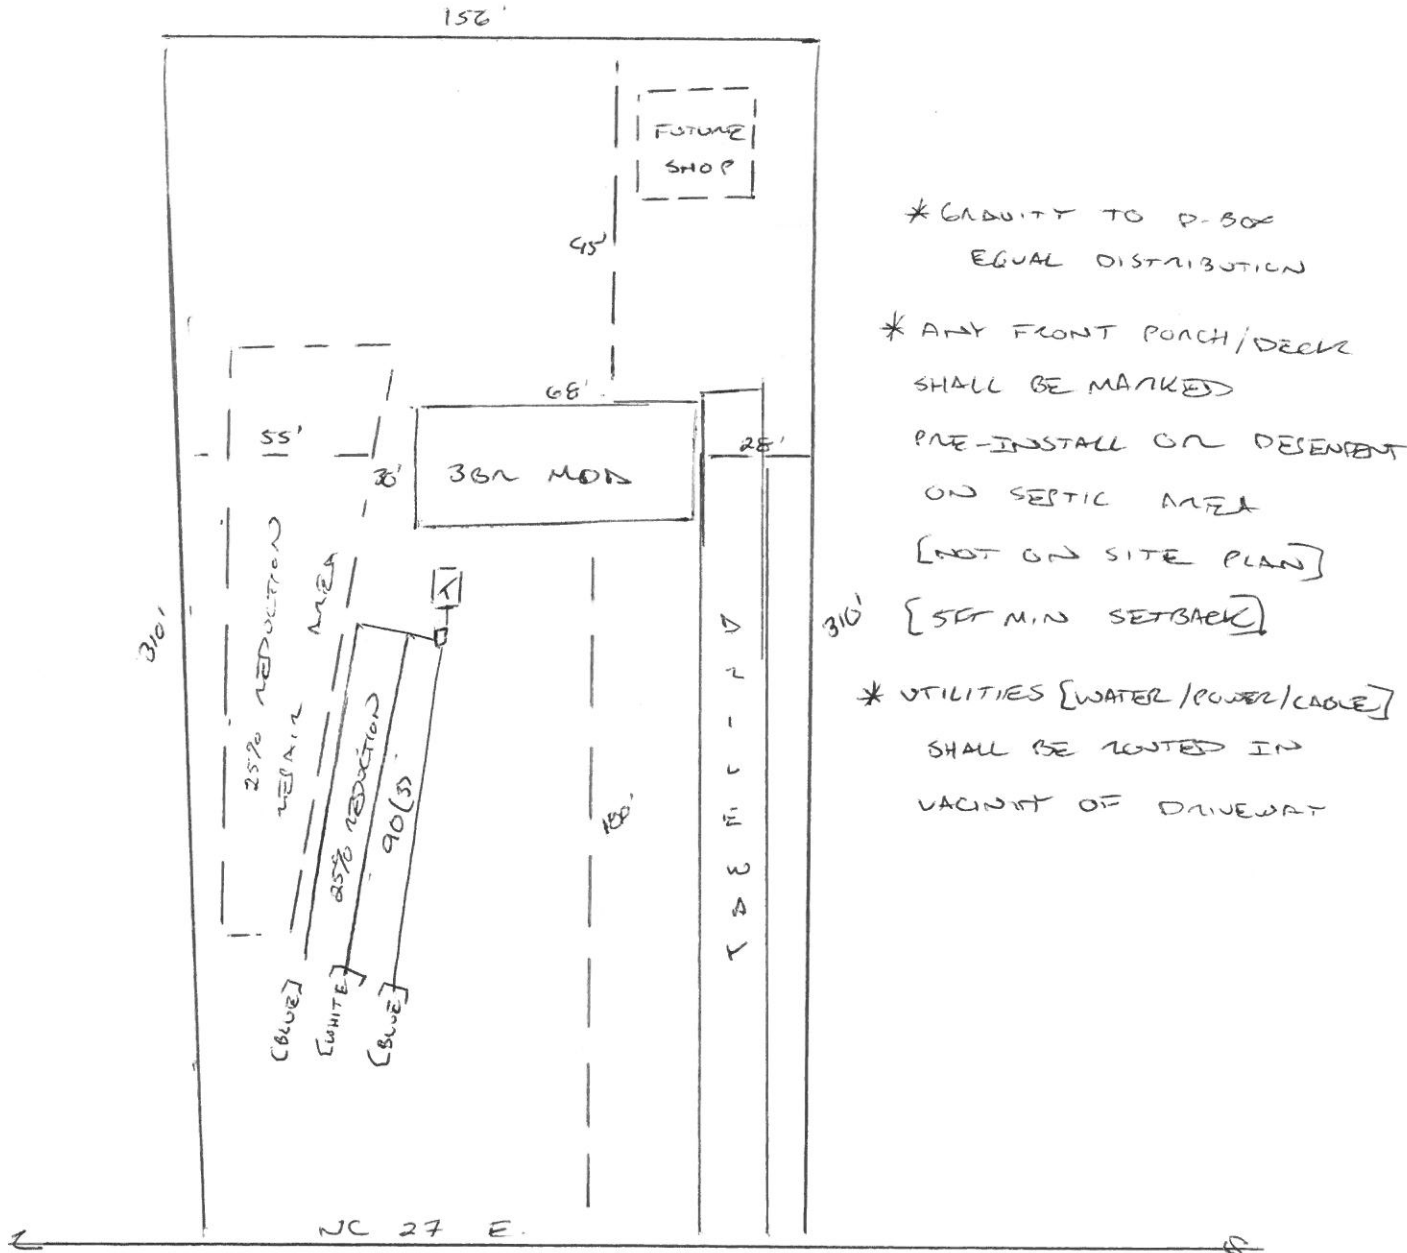 156'
FUTURE
SHOP
95'
68'
55'
28'
36'
3BR MOD
25% REDUCTION
REPAIR AREA
310'
310'
25% REDUCTION
90(3)
180'
DRIVEWAY
[BLUE]
[WHITE]
[BLUE]
NC 27 E.
* GRAVITY TO D-BOX
EQUAL DISTRIBUTION
* ANY FRONT PORCH/DECK
SHALL BE MARKED
PRE-INSTALL OR
ON SEPTIC AREA
[NOT ON SITE PLAN]
[5FT MIN SETBACK]
* UTILITIES [WATER/POWER/CABLE]
SHALL BE ROUTED IN
VACINITY OF DRIVEWAY